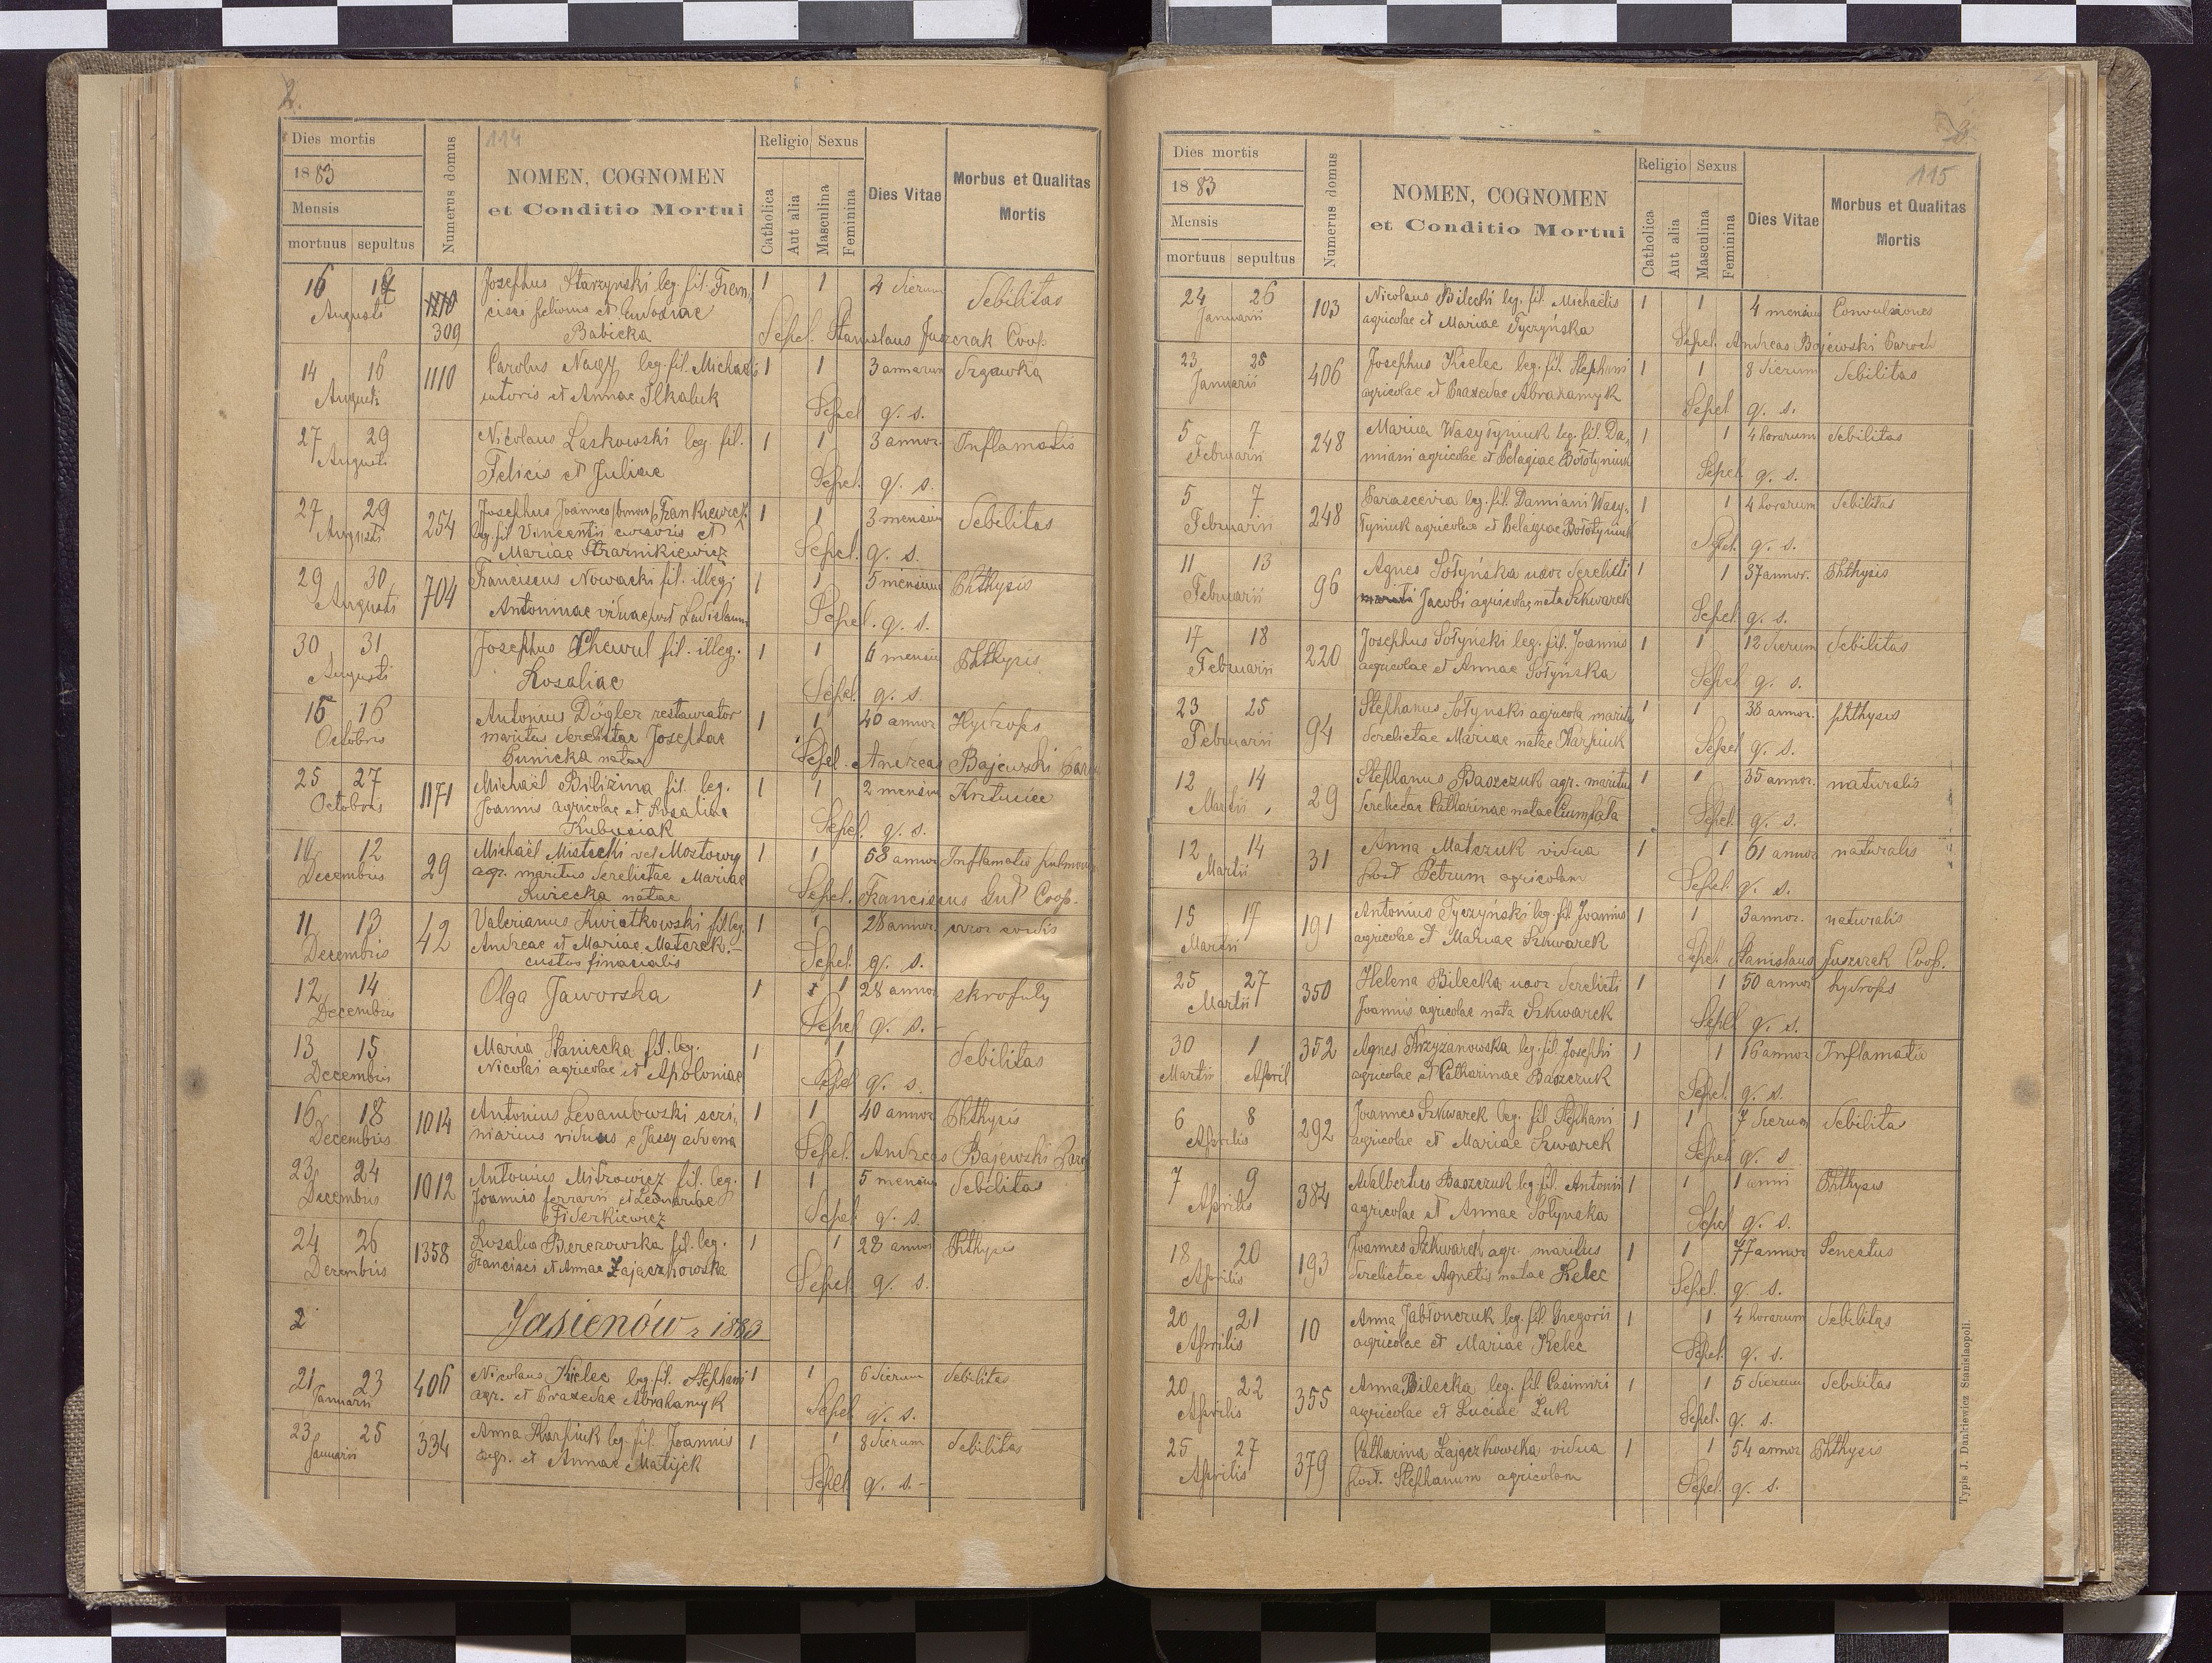 2.
114
Dies mortis
1883
Mensis
mortuus sepultus
Numerus domus
NOMEN, COGNOMEN
et Conditio Mortui
Religio Sexus
Catholica
Aut alia
Masculina
Feminina
Dies Vitae
Morbus et Qualitas
Mortis
16 Augusti
309
Josephus Starzynski leg. fil. Fran
Babicka
1 1 4 dierum Debilitas
Sepel. Stanislaus Juszczak Coop.
14 16 Augusti 1110
Carolus Nagy leg. fil. Michaelis
sutoris et Annae Ilkaluk
1 1 3 annorum Drgawka
Sepel. q. s.
27 29 Augusti
Nicolaus Laskowski leg. fil.
Felicis et Juliae
1 1 3 annor. Inflamatio
Sepel. q. s.
27 29 Augusti 254
Josephus Joannes /binom/ Frankiewicz
leg. fil. Vincentii cursoris et
Mariae Straznikiewicz
1 1 3 mensium Debilitas
Sepel. q. s.
29 30 Augusti 704
Franciscus Nowacki fil. illeg.
Antoninae viduae post Ladislaum
1 1 5 mensium Phthysis
Sepel. q. s.
30 31 Augusti
Josephus Chewul fil. illeg.
Rosaliae
1 1 6 mensium Phthysis
Sepel. q. s.
15 16 Octobris
Antonius Dögler restaurator
maritus derelictae Josephae
Punicka natae
1 1 40 annor Hydrops
Sepel. Andreas Bajewski Par
25 27 Octobris 1171
Michaël Bilizina fil. leg.
Joannis agricolae et Rosaliae
Kubusiak
1 1 2 mensium Krztusiec
Sepel. q. s.
10 12 Decembris 29
Michaël Mistecki vel Mostowy
agr. maritus derelictae Mariae
Kwiecka natae
1 1 58 annor Inflamatio pulmonum
Sepel. Franciscus Gut Coop.
11 13 Decembris 42
Valerianus Kwiatkowski fil. leg.
Andreae et Mariae Matczek.-
custos finacialis
1 1 28 annor. error cordis
Sepel. q. s.
12 14 Decembris
Olga Jaworska
1 1 28 annor skrofuły
Sepel q. s.
13 15 Decembris
Maria Staniecka fil. leg.
Nicolai agricolae et Apoloniae
1 1 Debilitas
Sepel q. s.
16 18 Decembris 1014
Antonius Levandowski scri
niarius viduus e Jassy advena
1 1 40 annor Phthysis
Sepel. Andreas Bajewski Par
23 24 Decembris 1012
Antonius Mitrowicz fil. leg.
Joannis ferrarii et Leonardae
Fiderkiewicz
1 1 5 mensium Debilitas
Sepel q. s.
24 26 Decembris 1358
Rosalia Berezowska fil. leg.
Francisci et Annae Zajączkowska
1 1 28 annor Phthysis
Sepel q. s.
2 Jasienów r 1883
21 23 Januarii 406
Nicolaus Kielec leg. fil. Stephani
agr. et Praxedae Abrahamyk
1 1 6 dierum debilitas
Sepel q. s.
23 25 Januarii 334
Anna Karpiuk leg. fil. Joannis
agr. et Annae Matijek
1 1 8 dierum debilitas
Sepel q. s.-
115
Dies mortis
1883
Mensis
mortuus sepultus
Numerus domus
NOMEN, COGNOMEN
et Conditio Mortui
Religio Sexus
Catholica
Aut alia
Masculina
Feminina
Dies Vitae
Morbus et Qualitas
Mortis
24 26 Januarii 103
Nicolaus Bilecki leg. fil. Michaëlis
agricolae et Mariae Tyczyńska
1 1 4 mensium Convulsiones
Sepel. Andreas Bajewski Paroch
23 25 Januarii 406
Josephus Kielec leg. fil. Stephani
agricolae et Praxedae Abrahamyk
1 1 8 dierum debilitas
Sepel q. s.
5 7 Februarii 248
Maria Wasyłyniuk leg. fil. Da
miani agricolae et Pelagiae Bołotyniuk
1 1 4 horarum debilitas
Sepel. q. s.
5 7 Februarii 248
Parascevia leg. fil. Damiani Wasy
łyniuk agricolae et Pelagiae Bołotyniuk
1 1 4 horarum debilitas
Sepel. q. s.
11 13 Februarii 96
Agnes Sołyńska uxor derelicti
Jacobi agricolae nata Szkwarek
1 1 37 annor. Phthysis
Sepel q. s.
17 18 Februarii 220
Josephus Sołynski leg. fil. Joannis
agricolae et Annae Sołyńska
1 1 12 dierum debilitas
Sepel q. s.
23 25 Februarii 94
Stephanus Sołynski agricola maritus
derelictae Mariae natae Karpiuk
1 1 38 annor. phthysis
Sepel q. s.
12 14 Martii 29
Stephanus Baszczuk agr. maritus
derelictae Catharinae natae Ciumpała
1 1 35 annor. naturalis
Sepel q. s.
12 14 Martii 31
Anna Matczuk vidua
post Petrum agricolam
1 1 61 annor naturalis
Sepel q. s.
15 17 Martii 191
Antonius Tyczyński leg. fil. Joannis
agricolae et Mariae Szkwarek
1 1 3 annor. naturalis
Sepel. Stanislaus Juszczak Coop.
25 27 Martii 350
Helena Bilecka uxor derelicti
Joannis agricolae nata Szkwarek
1 1 50 annor hydrops
Sepel q. s.
30 Martii 1 April 352
Agnes Krzyżanowska leg. fil. Josephi
agricolae et Catharinae Baszczuk
1 1 16 annor Inflamatio
Sepel q. s.
6 8 Aprilis 292
Joannes Szkwarek leg. fil. Stephani
agricolae et Mariae Szwarek
1 1 7 dierum debilitas
Sepel q. s
7 9 Aprilis 384
Adalbertus Baszczuk leg. fil. Antonii
agricolae et Annae Sołynska
1 1 1 anni Phthysis
Sepel q. s.
18 20 Aprilis 193
Joannes Szkwarek agr. maritus
derelictae Agnetis natae Kelec
1 1 77 annor Senectus
Sepel. q. s.
20 21 Aprilis 10
Anna Jabłonczuk leg. fil Gregorii
agricolae et Mariae Kelec
1 1 4 horarum debilitas
Sepel. q. s.
20 22 Aprilis 355
Anna Bilecka leg. fil Casimiri
agricolae et Luciae Luk
1 1 5 dierum debilitas
Sepel. q. s.
25 27 Aprilis 379
Catharina Zajączkowska vidua
post. Stephanum agricolam
1 1 54 annor Phthysis
Sepel. q. s.
Typis J. Dankiewicz Stanislaopoli.